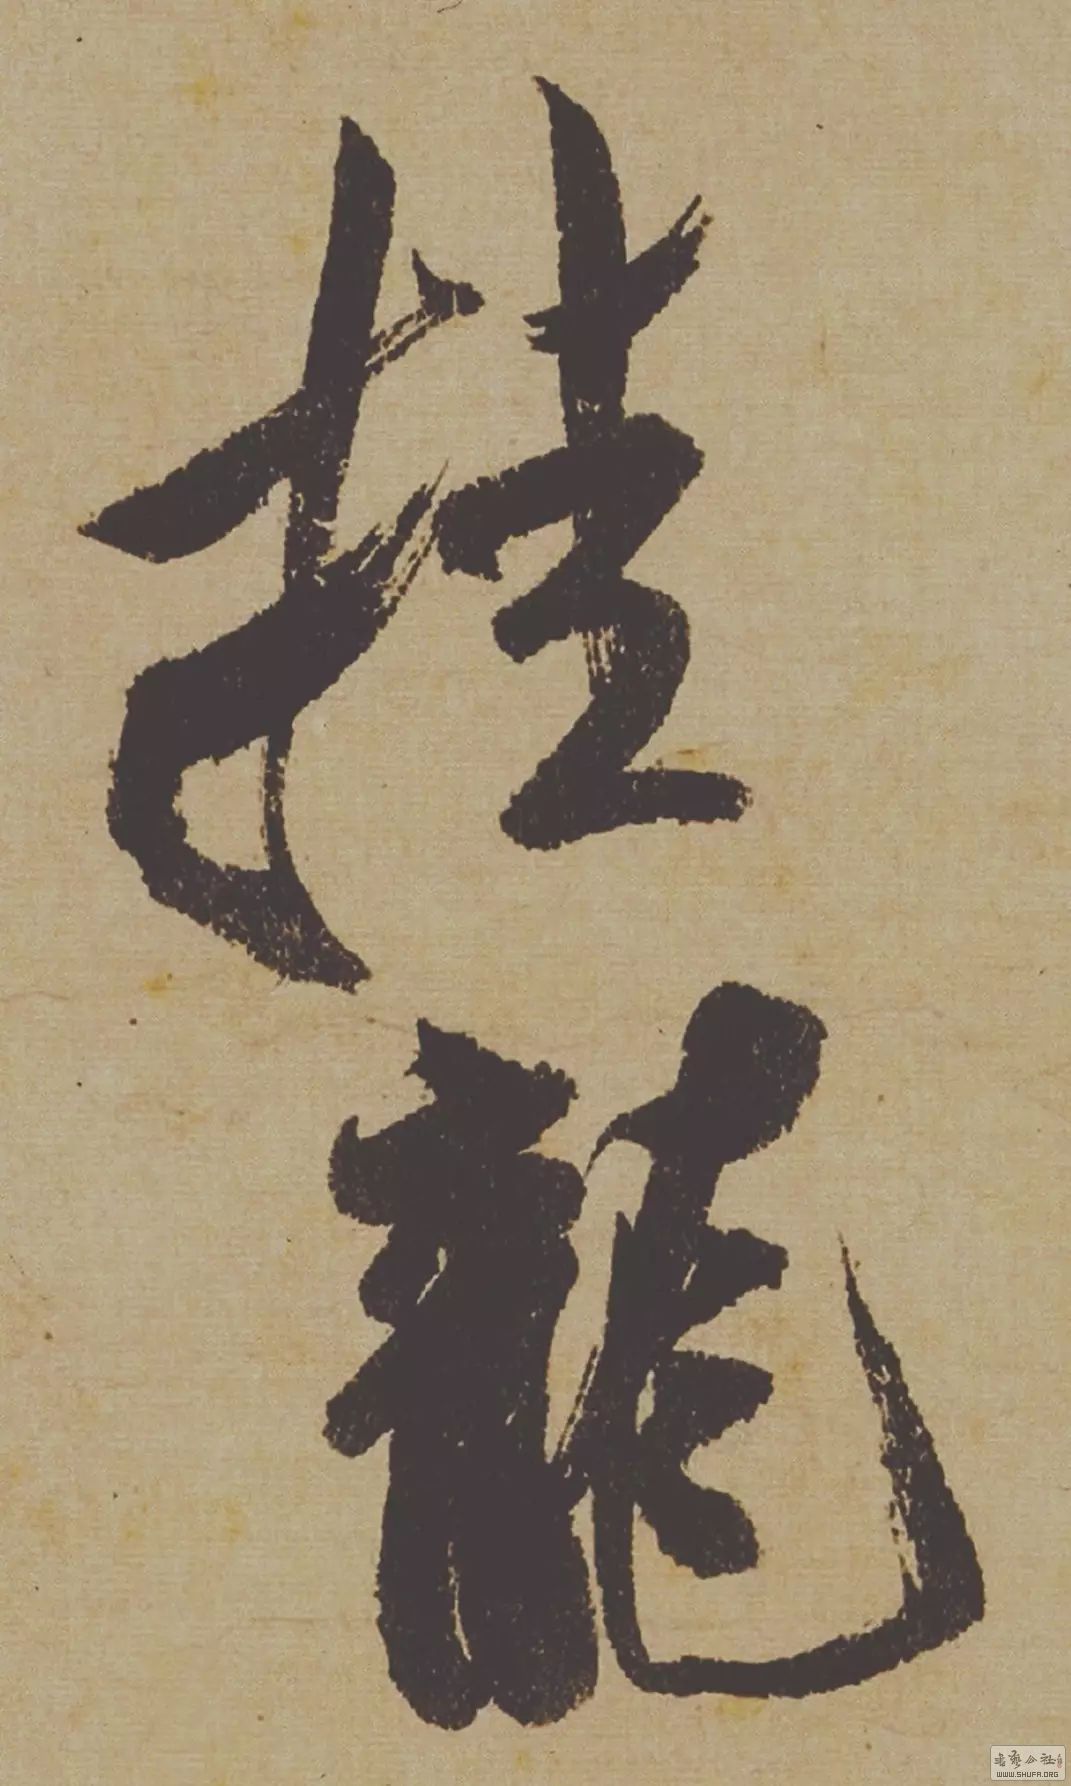 挂龍
书艺公社
WWW.SHUFA.ORG